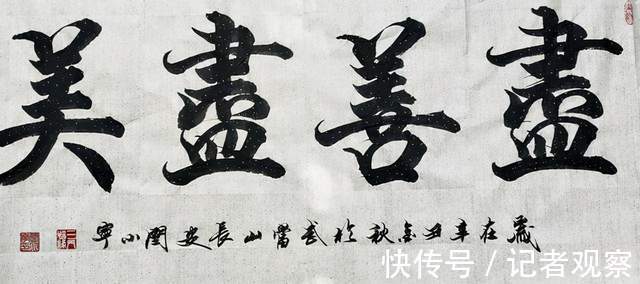 盡善盡美
歲在辛丑金秋於武當山長小寧
快传号 / 记者观察